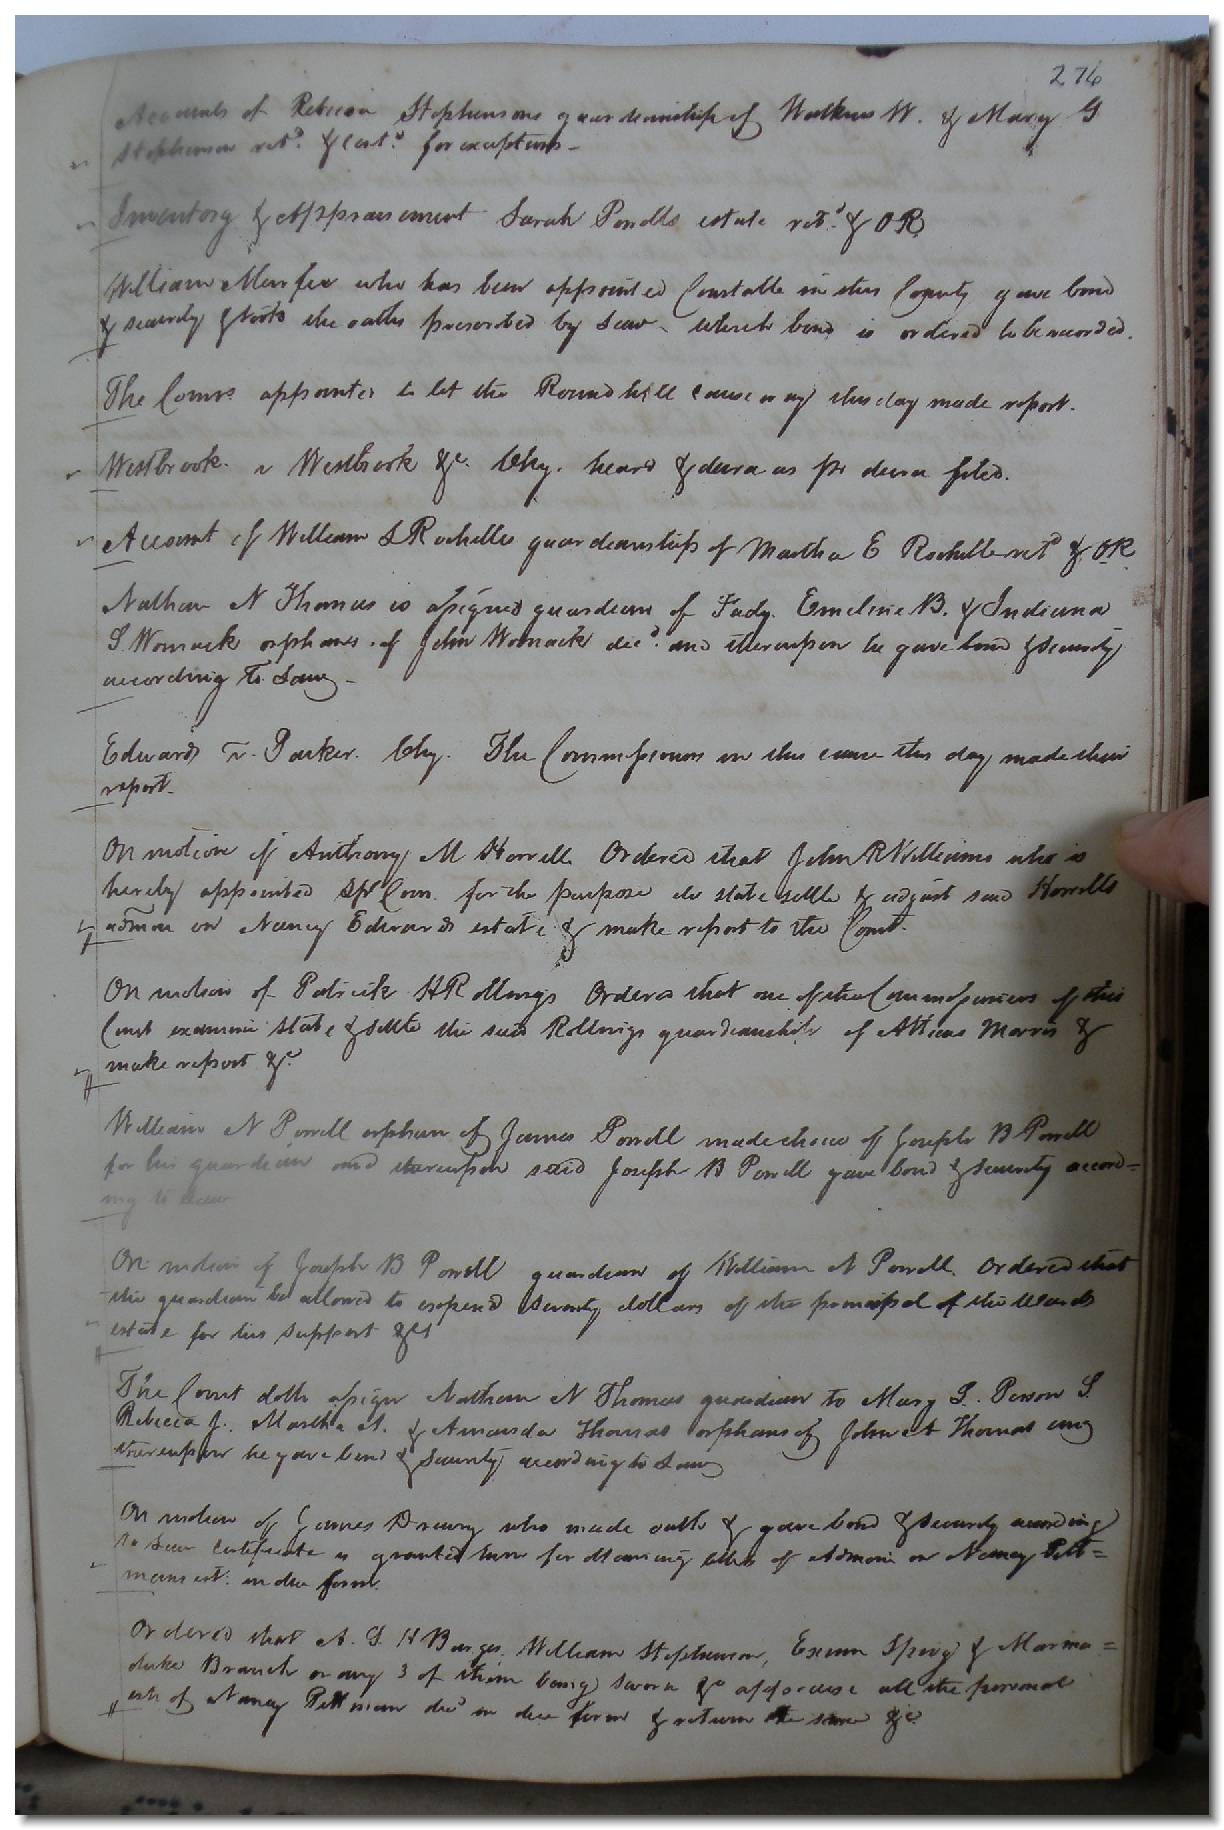 276
Accounts of Rebecca Stephensons guardianship of Watkins W. & Mary G
Stephenson retd. & cont.d for exceptions -
Inventory & Appraisement Sarah Powells estate retd. & OR
William Murfee who has been appointed Constable in this County gave bond
& security & took the oaths prescribed by Law - which bond is ordered to be recorded.
The Comrs appointed to let the Roundhill causeway this day made report.
Westbrook. v Westbrook &c. Chy. heard & decree as pr decree filed.
Account of William L Rochelles guardianship of Martha E Rochelle retd & OR
Nathan N Thomas is assigned guardian of Emeline B. & Indiana
S. Womack orphans of John Womack decd. and thereupon he gave bond & security
according to Law -
Edwards v. Parker. Chy. The Commissioners in this cause this day made their
report.
On motion of Anthony M Howell Ordered that John R Williams who is
hereby appointed Spl Com. for the purpose do state settle & adjust said Howells
admon on Nancy Edwards estate & make report to the Court.
On motion of Patrick H Rollings Ordered that one of the Commissioners of this
Court examine state & settle the said Rollings guardianship of Atticus Morris &
make report &c.
William N Powell orphan of James Powell made choice of Joseph B Powell
for his guardian and thereupon said Joseph B Powell gave bond & security accord=
ing to Law
On motion of Joseph B Powell guardian of William N Powell. Ordered that
the guardian be allowed to expend Seventy dollars of the principal of the Wards
estate for his support &c
The Court doth assign Nathan N Thomas guardian to Mary S.
Rebecca J. Martha A. & Amanda Thomas orphans of John A Thomas
thereupon he gave bond & security according to Law
On motion of James Drewry who made oath & gave bond & security according
to Law Certificate is granted him for obtaining letters of Admon on Nancy Pitt=
mans est. in due form.
Ordered that A. S. H Burges, William Stephenson, Exum Spivy & Marma=
duke Branch or any 3 of them being sworn &c appraise all the personal
este of Nancy Pittman decd in due form & return the same &c